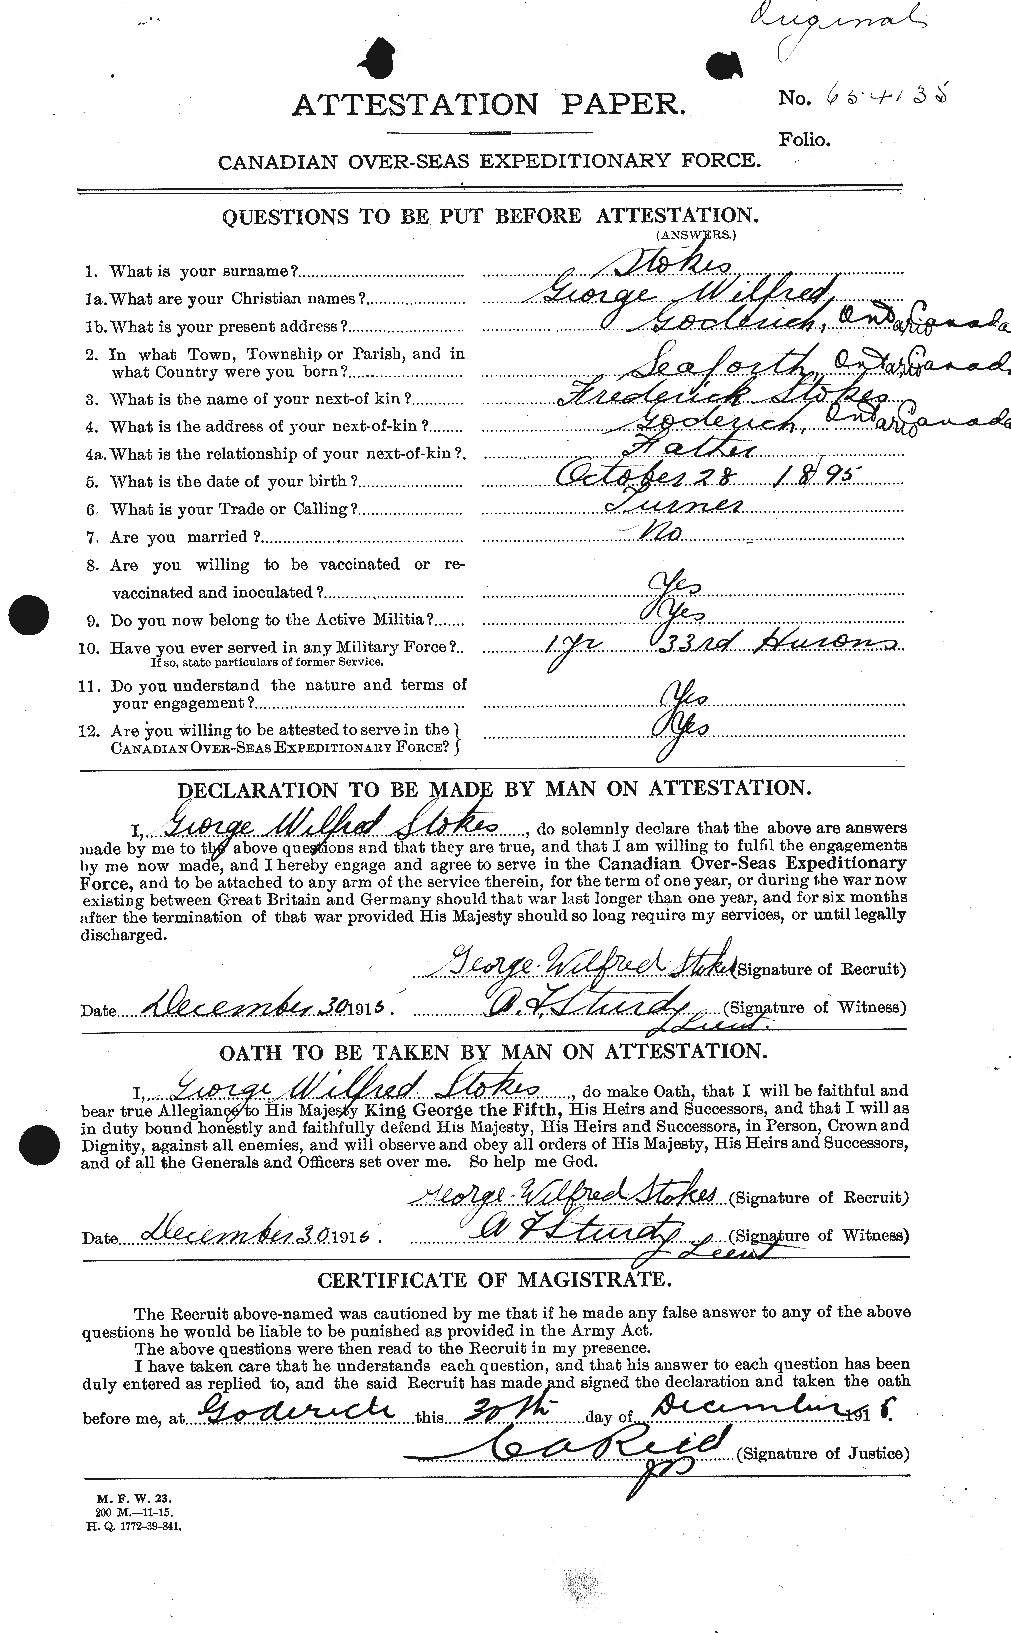 Original
No. 654135
ATTESTATION PAPER.
Folio.
CANADIAN OVER-SEAS EXPEDITIONARY FORCE.
QUESTIONS TO BE PUT BEFORE ATTESTATION.
(ANSWERS.)
1. What is your surname? Stokes
1a. What are your Christian names? George Wilfred
1b. What is your present address? Goderich, Ontario Canada
2. In what Town, Township or Parish, and in
what Country were you born? Seaforth, Ontario Canada
3. What is the name of your next-of kin? Frederick Stokes
4. What is the address of your next-of-kin? Goderich, Ontario Canada
4a. What is the relationship of your next-of-kin? Father
5. What is the date of your birth? October 28 1895
6. What is your Trade or Calling? Turner
7. Are you married? No
8. Are you willing to be vaccinated or re-
vaccinated and inoculated? Yes
9. Do you now belong to the Active Militia? Yes
10. Have you ever served in any Military Force? 1 yr 33rd Hurons
If so, state particulars of former Service.
11. Do you understand the nature and terms of
your engagement? Yes
12. Are you willing to be attested to serve in the
CANADIAN OVER-SEAS EXPEDITIONARY FORCE? Yes
DECLARATION TO BE MADE BY MAN ON ATTESTATION.
I, George Wilfred Stokes, do solemnly declare that the above are answers
made by me to the above questions and that they are true, and that I am willing to fulfil the engagements
by me now made, and I hereby engage and agree to serve in the Canadian Over-Seas Expeditionary
Force, and to be attached to any arm of the service therein, for the term of one year, or during the war now
existing between Great Britain and Germany should that war last longer than one year, and for six months
after the termination of that war provided His Majesty should so long require my services, or until legally
discharged.
George Wilfred Stokes (Signature of Recruit)
Date December 30 1915. A. F. Sturdy (Signature of Witness)
Lieut.
OATH TO BE TAKEN BY MAN ON ATTESTATION.
I, George Wilfred Stokes, do make Oath, that I will be faithful and
bear true Allegiance to His Majesty King George the Fifth, His Heirs and Successors, and that I will as
in duty bound honestly and faithfully defend His Majesty, His Heirs and Successors, in Person, Crown and
Dignity, against all enemies, and will observe and obey all orders of His Majesty, His Heirs and Successors,
and of all the Generals and Officers set over me. So help me God.
George Wilfred Stokes (Signature of Recruit)
Date December 30 1915. A F Sturdy (Signature of Witness)
Lieut
CERTIFICATE OF MAGISTRATE.
The Recruit above-named was cautioned by me that if he made any false answer to any of the above
questions he would be liable to be punished as provided in the Army Act.
The above questions were then read to the Recruit in my presence.
I have taken care that he understands each question, and that his answer to each question has been
duly entered as replied to, and the said Recruit has made and signed the declaration and taken the oath
before me, at Goderich this 30th day of December 1915.
C A Reid (Signature of Justice)
JP
M. F. W. 23.
200 M.—11-15.
H. Q. 1772-39-841.